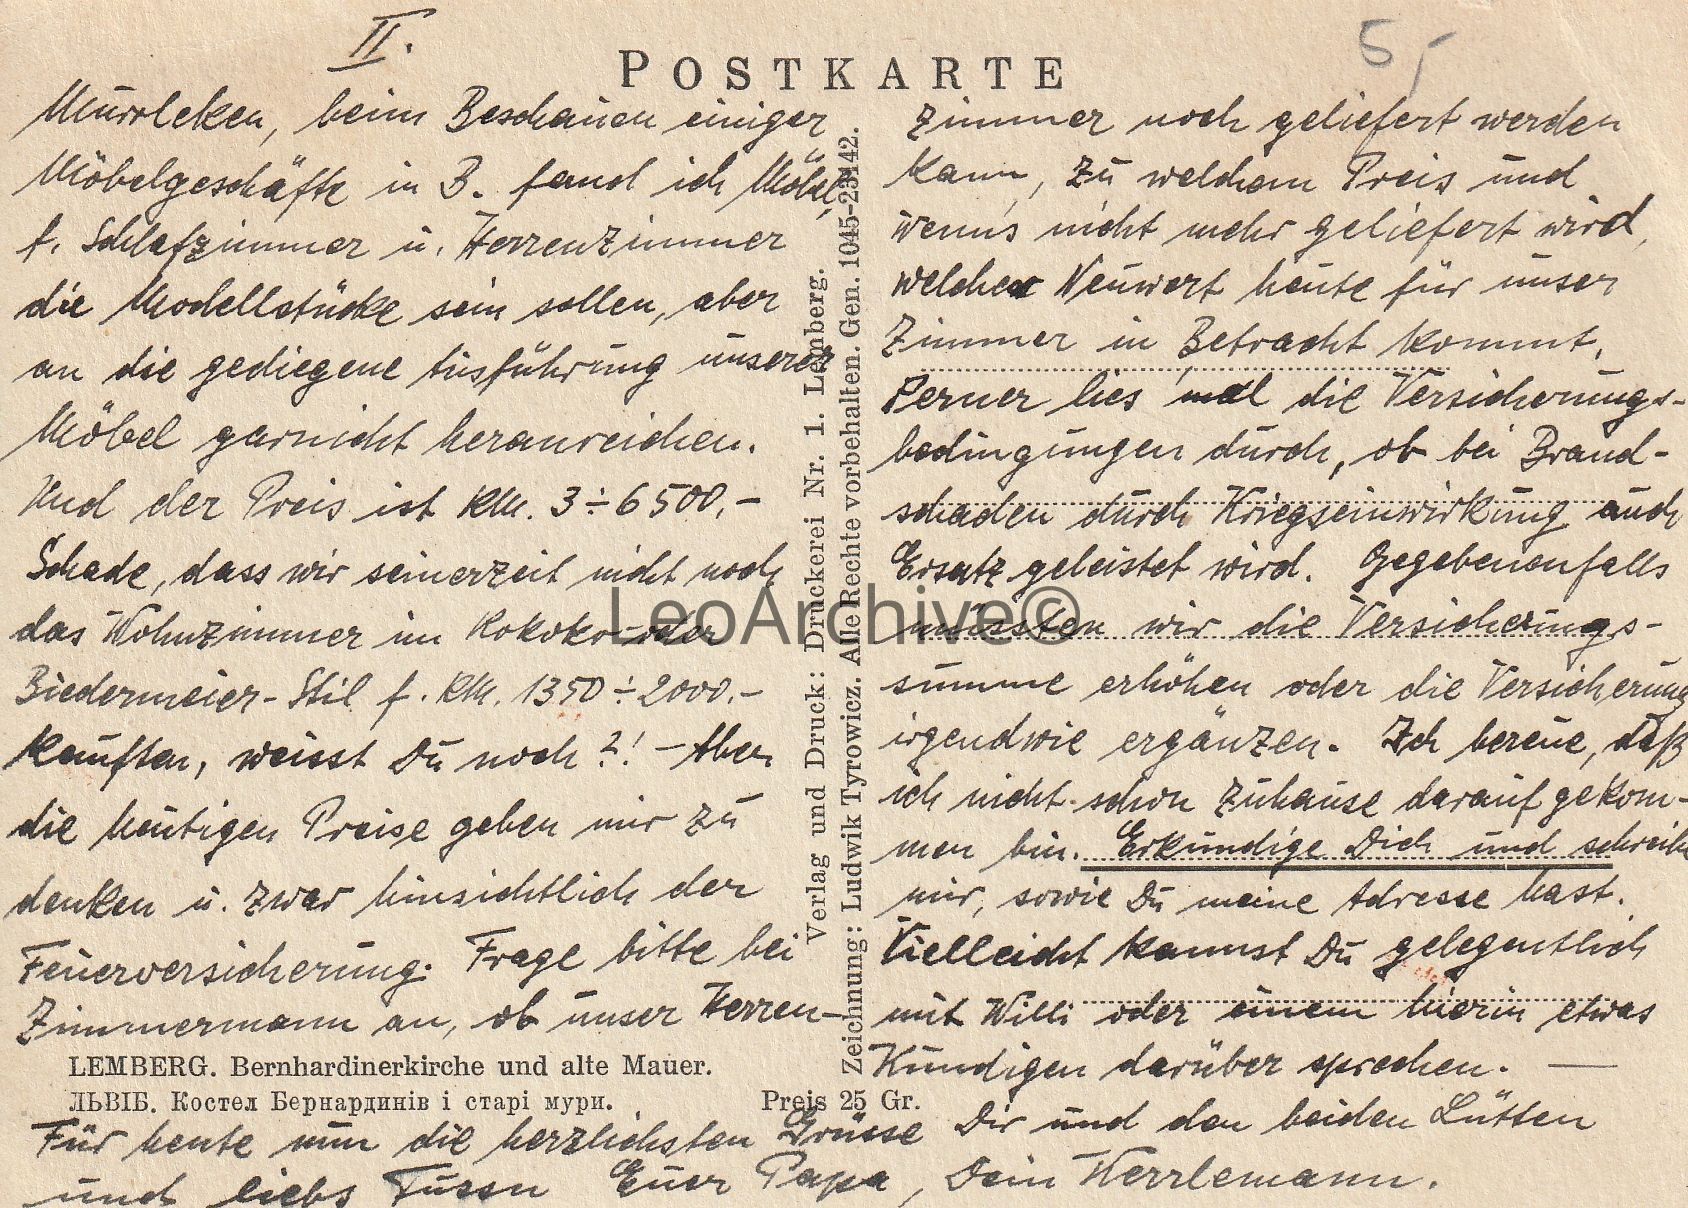 II.
5,-
POSTKARTE
Murrleken, beim Beschauen einiger
Möbelgeschäfte in B. fand ich Möbel,
f. Schlafzimmer u. Herrenzimmer
die Modellstücke sein sollen, aber
an die gediegene Ausführung unserer
Möbel garnicht heranreichen.
Und der Preis ist RM. 3÷6500.-
Schade, dass wir seinerzeit nicht noch
das Wohnzimmer im Rokoko- oder
Biedermeier-Stil f. RM. 1350÷2000.-
kauften, weisst Du noch?! - Aber
die heutigen Preise geben mir zu
denken u. zwar hinsichtlich der
Feuerversicherung. Frage bitte bei
Zimmermann an, ob unser Herren-
zimmer noch geliefert werden
kann, zu welchem Preis und
wenn's nicht mehr geliefert wird,
welcher Neuwert heute für unser
Zimmer in Betracht kommt.
Ferner lies mal die Versicherungs-
bedingungen durch, ob bei Brand-
schaden durch Kriegseinwirkung auch
Ersatz geleistet wird. Gegebenenfalls
müssten wir die Versicherungs-
summe erhöhen oder die Versicherung
irgendwie ergänzen. Ich bereue, daß
ich nicht schon zuhause darauf gekom-
men bin. Erkundige Dich und schreibe
mir, sowie Du meine Adresse hast.
Vielleicht kannst Du gelegentlich
mit Willi oder einem hierin etwas
Kundigen darüber sprechen. —
Verlag und Druck: Druckerei Nr. 1. Lemberg.
Zeichnung: Ludwik Tyrowicz. Alle Rechte vorbehalten. Gen. 1045-23142.
LeoArchive©
LEMBERG. Bernhardinerkirche und alte Mauer.
ЛЬВІВ. Костел Бернардинів і старі мури.
Preis 25 Gr.
Für heute nun die herzlichsten Grüsse Dir und den beiden Lütten
und liebs Euer Papa, Dein Herrlemann.